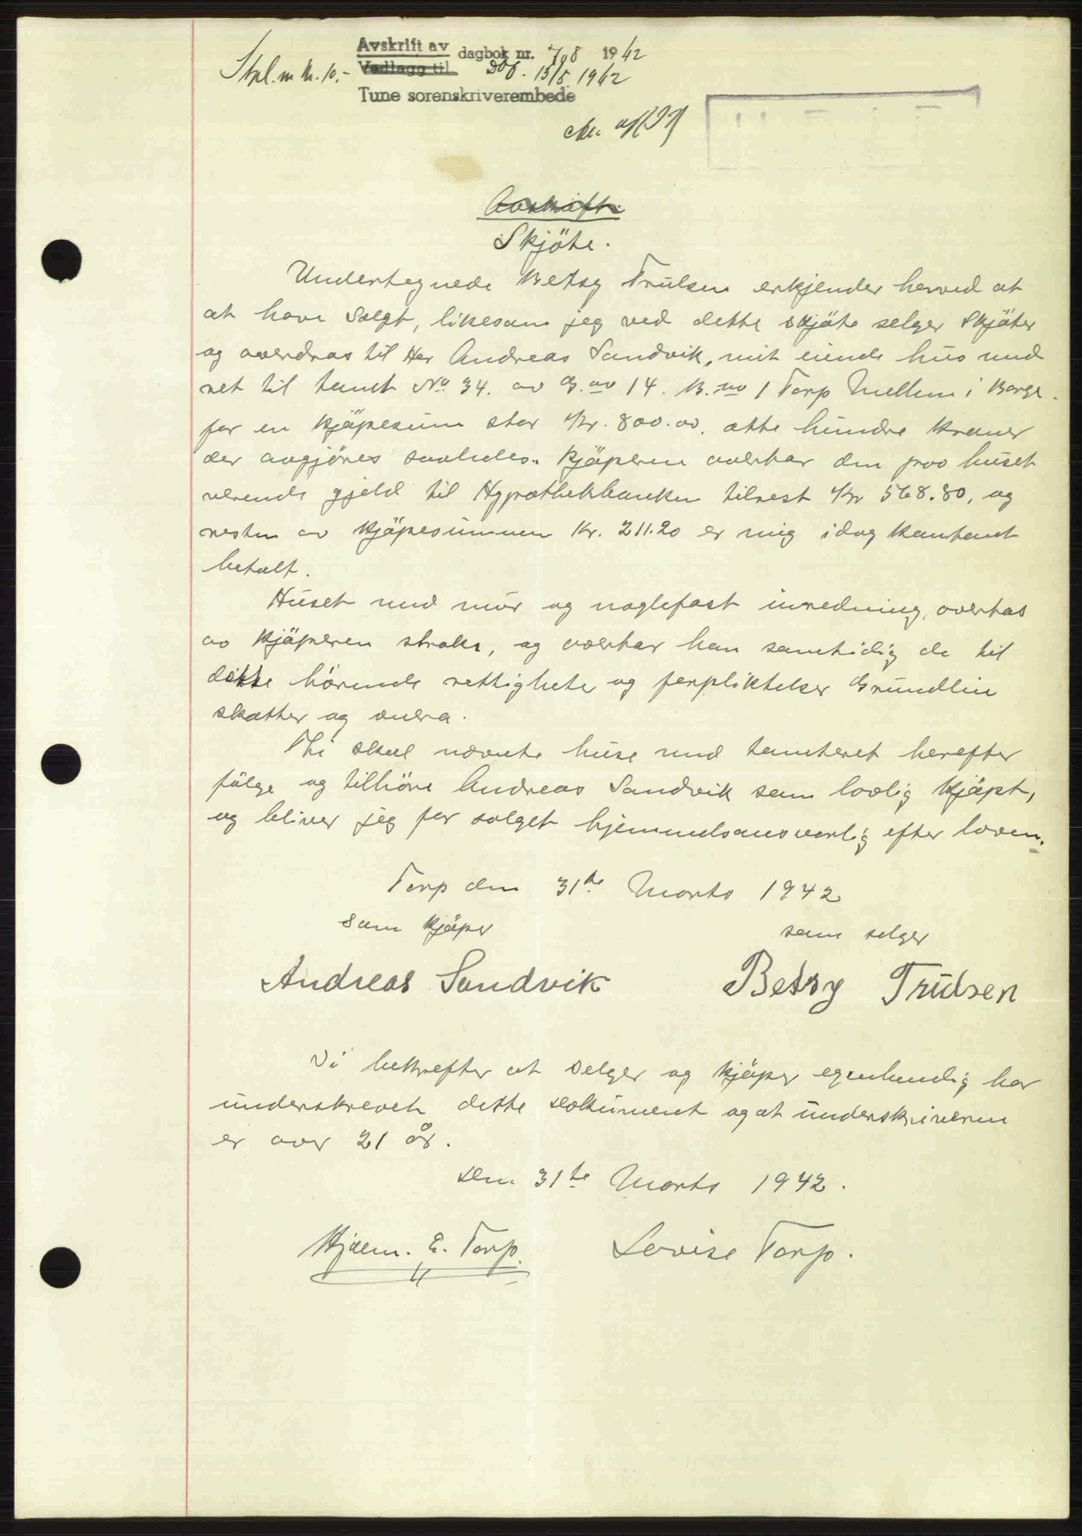 Avskrift av dagbok nr. 708 1942
Vedlagg til 15/5 1942
Stpl. m kr. 10.-
Tune sorenskriverembede
Avskrift.
Skjöte.
Undertegnede Betsy Trulsen erkjender herved at
at have solgt, likesom jeg ved dette skjöte selger skjöter
og overdras til Her Andreas Sandvik, mit eiende hus med
ret til tomt No 34. av G. no 14. B. no 1 Torp Mellem i Borge.
for en kjöpesum stor Kr. 800.00. otte hundre kroner
der avgjöres saaledes. Kjöperen overtar den paa huset
værende gjeld til Hypothekbanken tilrest Kr 568.80, og
resten av kjöpesummen Kr. 211.20 er mig idag kontant
betalt.
Huset med mur og naglefast inredning, overtas
av kjöperen straks, og overtar han samtidig de til
dette hörende rettigheter og forpliktelser Grundleie
skatter og
Thi skal nævnte huse med tomteret herefter
fölge og tilhöre Andreas Sandvik som lovlig kjöpt,
og bliver jeg for salget hjemmelsansvarlig efter loven.
Torp den 31te Marts 1942
som kjöper som selger
Andreas Sandvik Betsy Trulsen
Vi bekrefter at selger og kjöper egenhendig har
underskrevet dette dokument og at underskriveren
er over 21 år.
den 31te Marts 1942.
Hjalm. E. Torp. Lovise Torp.